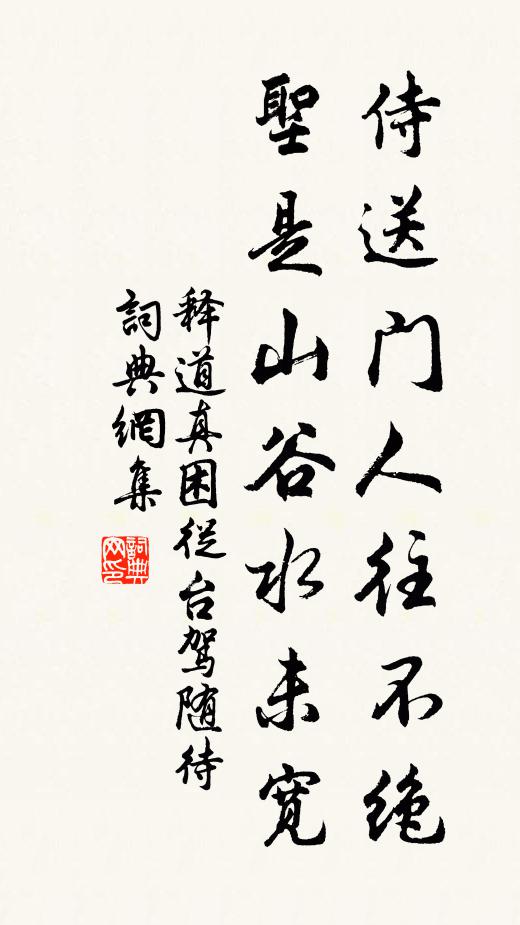 侍送门人往不绝
聖是山谷水未寬
释道真困從台驾随待
詞典網集
詞典网印